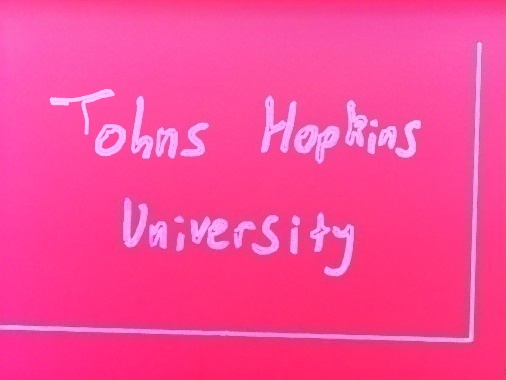 Tohns Hopkins
University